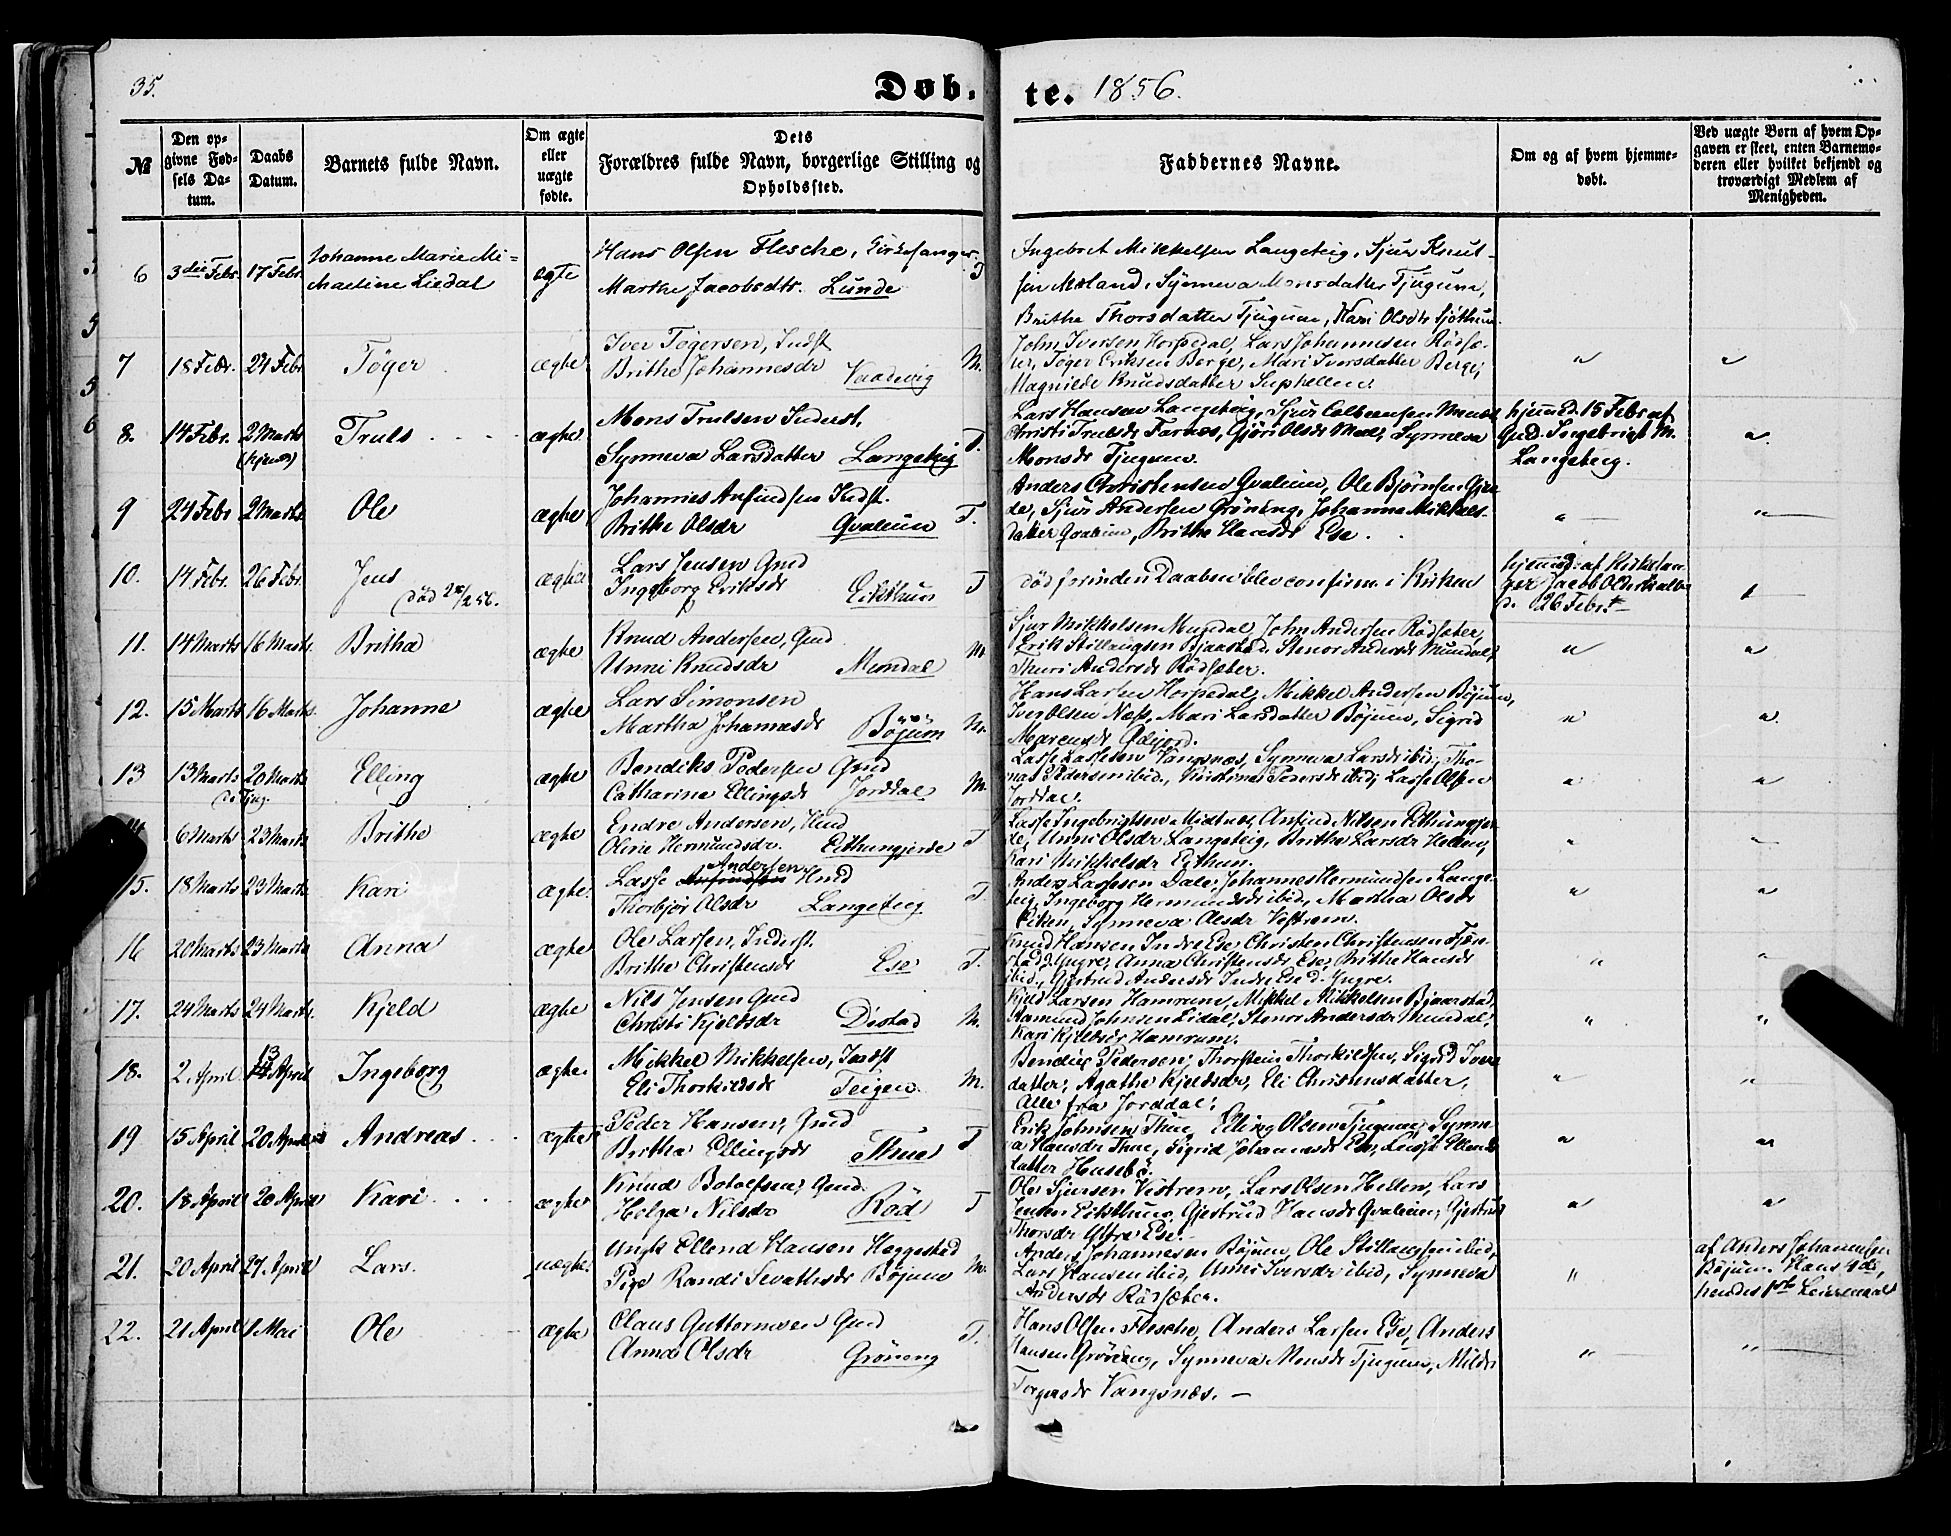 35.
Døb. te. 1856.
№
Den opgivne Fødsels Datum.
Daabs Datum.
Barnets fulde Navn.
Om ægte eller uægte fødte.
Dets Forældres fulde Navn, borgerlige Stilling og Opholdssted.
Faddernes Navne.
Om og af hvem hjemmedøbt.
Ved uægte Børn af hvem Opgaven er skeet, enten Barnemoderen eller hvilket bekjendt og troværdigt Medlem af Menigheden.
6 3die Febr. 17 Febr. Johanne Marie Mi=
ægte
Hans Olsen Flesche, Kirkesanger
Marthe Jacobsdtr. Lunde T
Ingebret Mikkelsen Langeteig, Sjur Knut-
sen Mæland, Synneva Monsdatter Tjugum,
Brithe Thorsdatter Tjugum, Kari Olsdr
7 18 Febr. 24 Febr. Tøger ægte
Iver Tøgersen, Indst
Brithe Johannesdr M.
John Iversen Horpedal, Lars Johannesen Rødsæ-
ter, Tøger Eriksen Berge, Mari Iversdatter Berge,
Magnilde Knudsdatter Suphellen.
8. 14 Febr. 2 Marts (hjem) Truls ægte
Mons Trulsen Inderst,
Synneva Larsdatter Langeteig T.
Lars Hansen Langeteig, Sjur
Christi Trulsdr Farnes, Gjøri Olsdr Synneva
Monsdr Tjugum.
hjemd. 15 Febr af
Gmd. Ingebrigt M.
Langeteig.
9 24 Febr 2 Marts Ole ægte
Johannes Anfindsen Indst.
Brithe Olsdr Qvaleim T.
Anders Christensen Qvaleim, Ole Bjørnsen
Sjur Andersen Grøning, Johanne Mikkels-
datter Qvaleim, Brithe Hansdr Ese.
10. 14 Febr. 26 Febr. Jens ægte
Lars Jensen Gmd
Ingeborg Eriksdr Eikthun T
død forinden Daaben blev confirm. i Kirken
hjemd. af Kirkesan-
ger Jacob
d. 26 Febr.
11. 14 Marts 16 Marts Britha ægte
Knud Andersen, Gmd
Unni Knudsdr Mundal M
Sjur Mikkelsen Mundal, John Andersen Rødsæter,
Erik Stillaugsen Bjaastad, Stenor Andersdr Mundal,
Thuri Andersdr Rødsæter.
12. 15 Marts 16 Marts. Johanne ægte
Lars Simonsen
Martha Johannesdr Bøjum M.
Hans Larsen Horpedal, Mikkel Andersen Bøjum,
Iver Olsen Næss, Mari Larsdatter Bøjum, Sigrid
13 13 Marts 20 Marts Elling ægte
Bendiks Pedersen Gmd
Catharina Ellingsdr Jorddal M.
Lasse Lassesen Vangsnæs, Synneva Larsdr ibid, Tho-
mas Pedersen ibid, Pedersdr ibid, Lasse Olsen
Jorddal.
6 Marts 23 Marts Brithe ægte
Endre Andersen, Hmd
Oline Hermundsdr. Eithungjerde T
Lasse Ingebrigtsen Midtnæs, Anfind Nilsen Eithungjer-
de, Unni Olsdr Langeteig, Brithe Larsdr
Kari Mikkelsdr Eithun.
15. 18 Marts 23 Marts Kari ægte.
Lasse Andersen Hmd
Thorbjør Olsdr Langeteig T.
Anders Lassesen Dale, Johannes Hermundsen Lange-
teig, Ingeborg Hermundsdr ibid, Martha Olsdr
Synneva Olsdr Vestrem.
16 20 Marts 23 Marts Anna ægte
Ole Larsen, Inderst.
Brithe Christensdr Ese T.
Knud Hansen Indre Ese, Christen Christensen Fjær-
stad d. Yngre, Anna Christensdr Ese, Brithe Hansdr
ibid, Gjertrud Andersdr Indre Ese d. Yngre.
17. 24 Marts 24 Marts. Kjeld ægte
Nils Jensen Gmd
Christi Kjeldsdr Distad M.
Kjeld Larsen Hamrum, Mikkel Mikkelsen Bjaastad,
Aamund Johnsen Eidal, Stenor Andersdr Mundal,
Kari Kjeldsdr Hamrum.
18. 2 April 13 April Ingeborg ægte.
Mikkel Mikkelsen, Indst
Eli Thorkildsdr Teigen M.
Bendix Pedersen, Thorstein Thorkildsen, Sigrid Ivers
datter, Agathe Kjeldsdr, Eli Christensdatter,
Alle fra Jorddal.
19 15 April 20 April Andreas ægte
Peder Hansen, Gmd
Britha Ellingsdr Thue T
Erik Johnsen Thue, Elling Olsen Tjugum, Synne-
va Hansdr Thue, Sigrid Johannesdr Ese,
datter Husebø.
20. 18 April 20 April Kari ægte
Knud Botolfsen, Gmd.
Helga Nilsdr Rød T
Ole Sjursen Vestrem, Lars Olsen Hellen, Lars
Jensen Eikthun, Gjertrud Hansdr Qvaleim, Gjertrud
Thorsdr Yttre Ese.
21. 20 April 27 April Lars. uægte.
Ungk Ellend Hansen Heggestad
Pige Randi Sevathsdr Bøjum M.
Anders Johannesen Bøjum, Ole Stillaugsen ibid,
Lars Hansen ibid, Unni Iversdr ibid, Synneva
Andersdr Rødsæter.
af Anders Johannesen
Bøjum. Hans 4de,
hendes 1ste Leiermaal
22. 21 April 1 Mai Ole ægte
Claus Guttormsen Gmd
Anna Olsdr Grøneng T.
Hans Olsen Flesche, Anders Larsen Ese, Anders
Hansen Grøneng, Synneva Monsdr Tjugum, Mildri
Torgersdr Vangsnæs. —